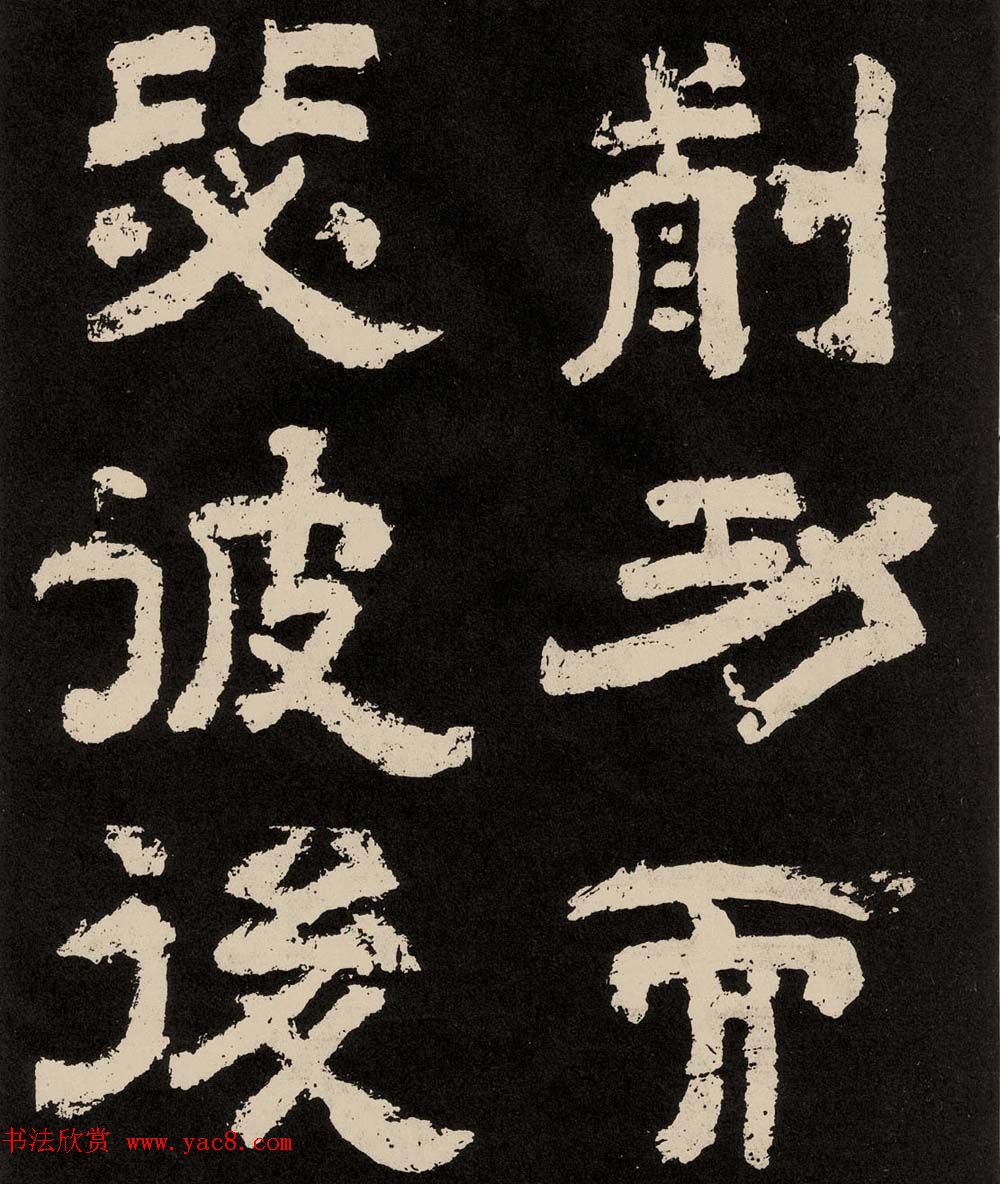 前功而
彼後
书法欣赏 www.yac8.com